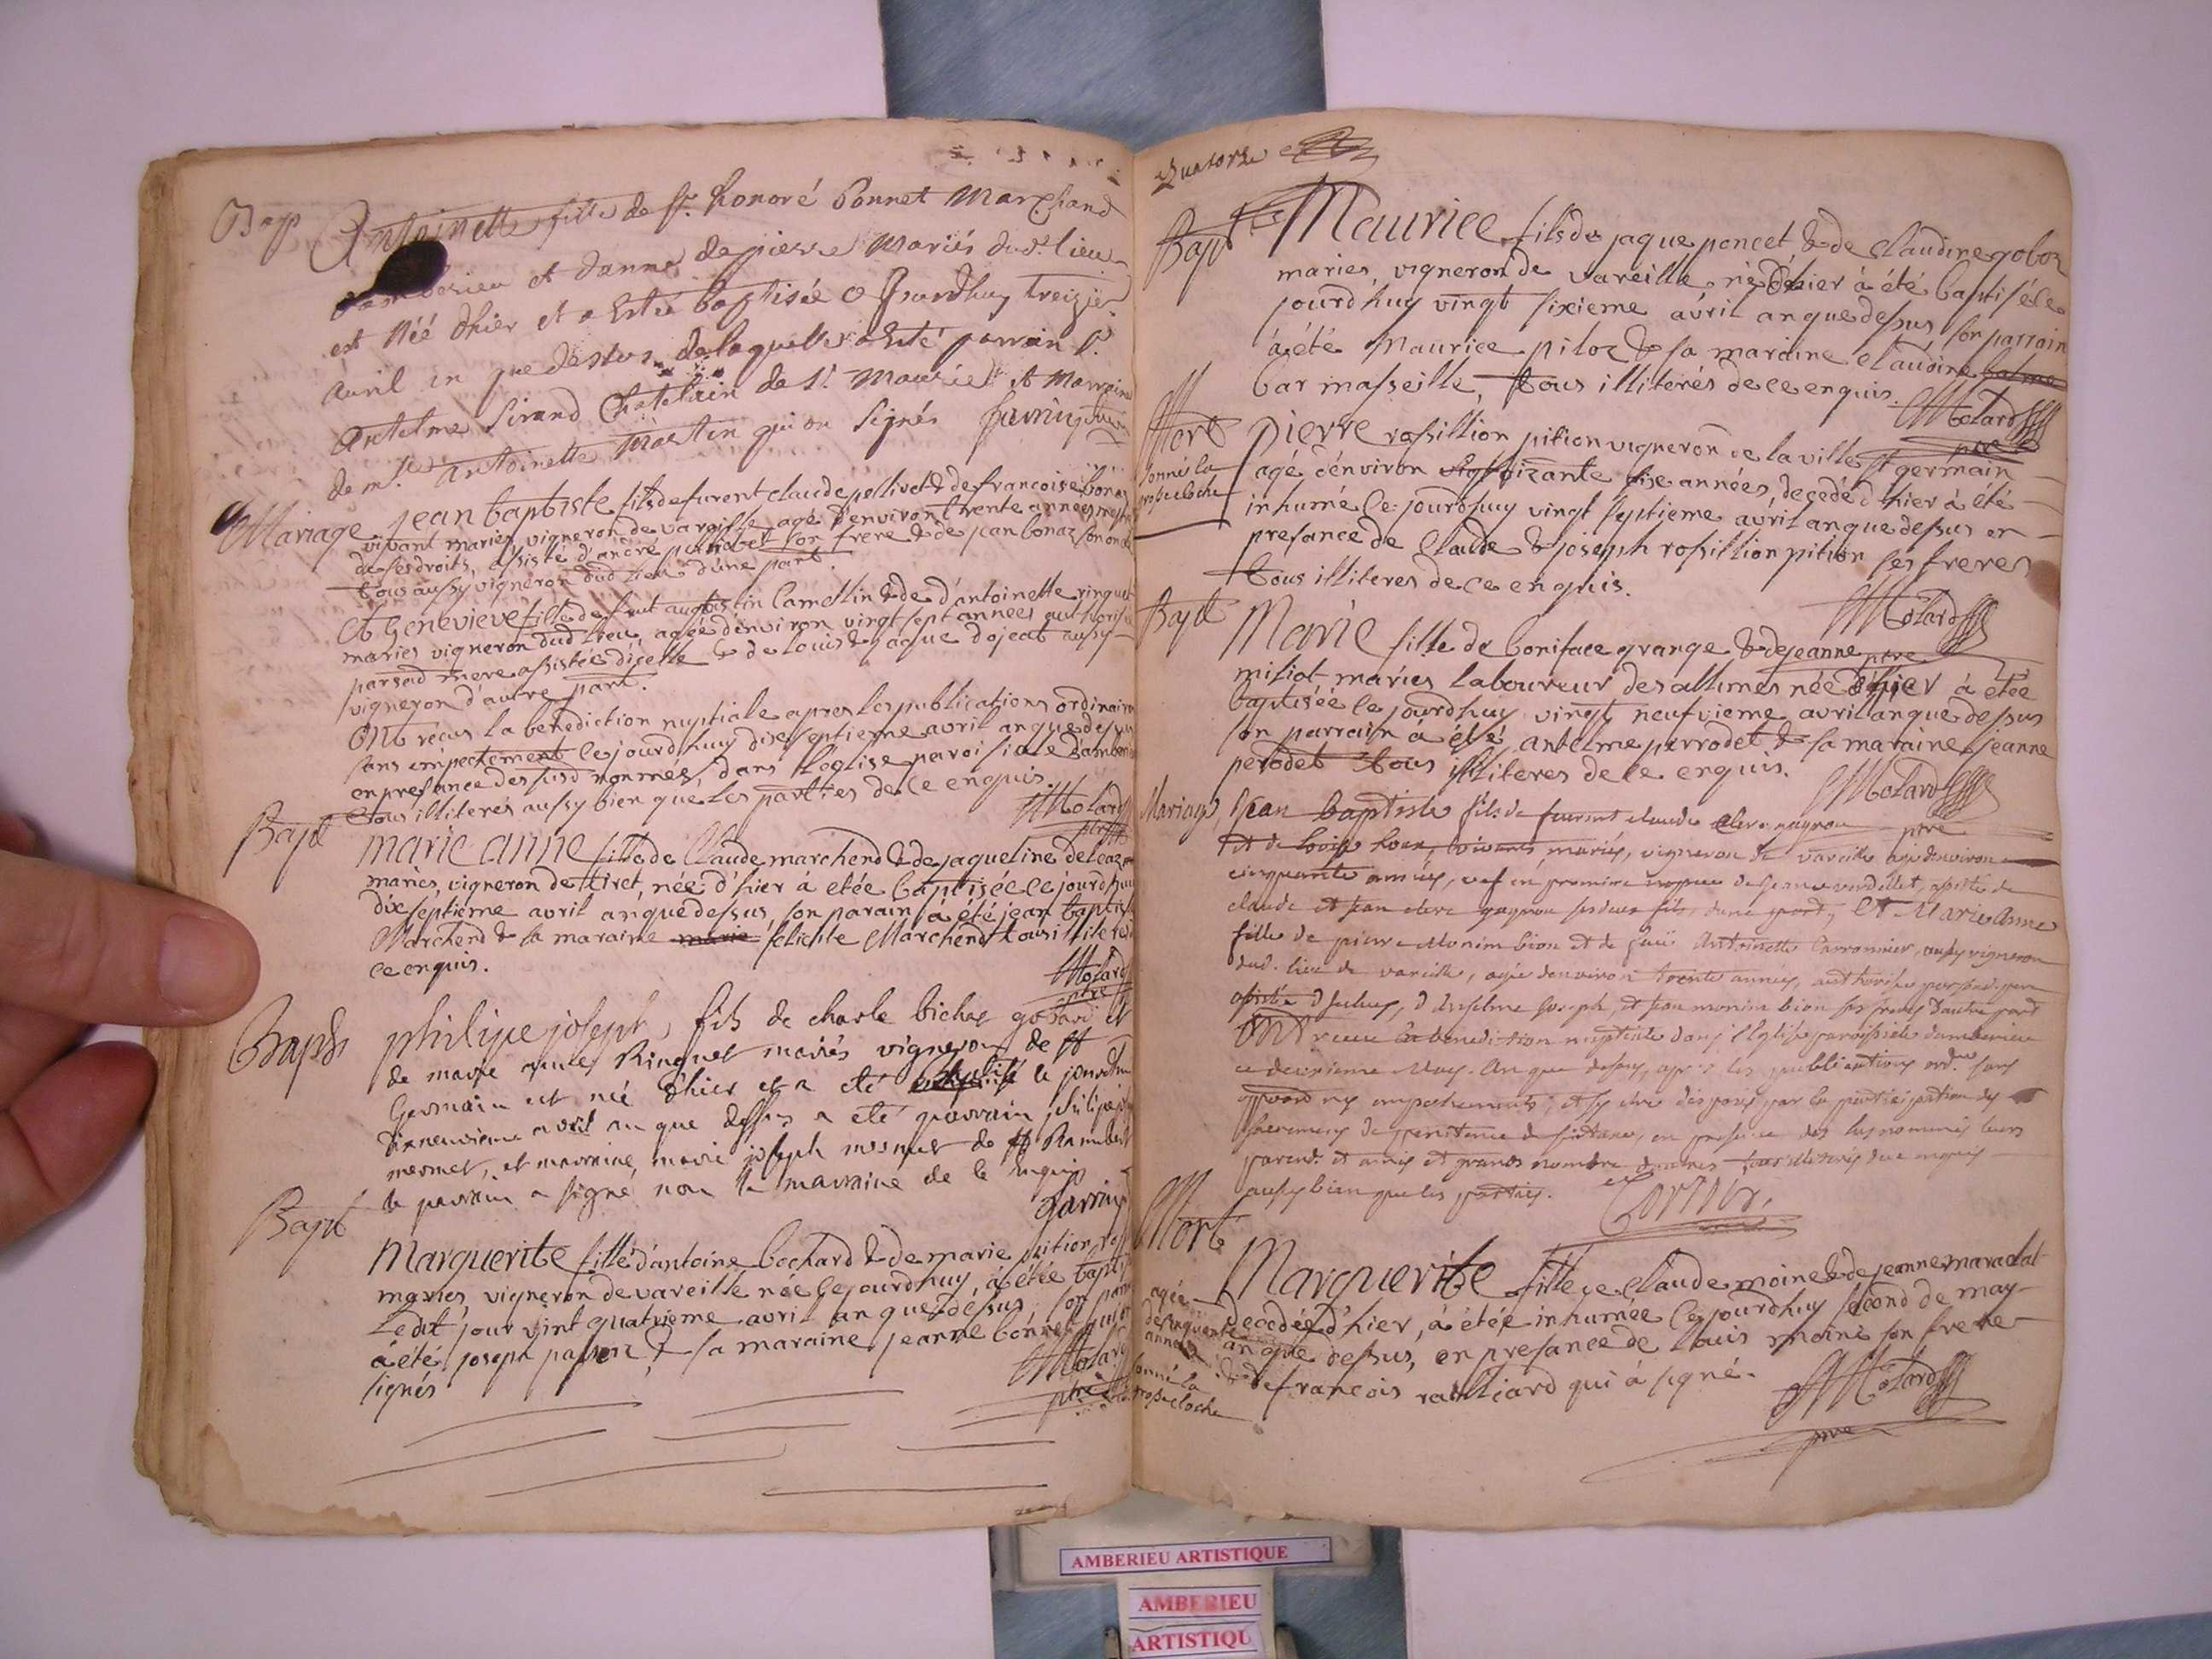 Bap Antoinette fille de Sr. honoré bonnet Marchand
et danne de pierre Mariés dud. lieu
est Née dhier et a Esté baptisée Treizie
avril an que dessus de laquelle a Esté parrain Sr.
Antelme Sirand Chatelain de St. Maurice et Marraine
de antoinette Martin qui on signés
Mariage jean baptiste fils de furent claude pellivet & de francoise bonaz
vivant mariés, vigneron de vareille agé d'environ trente années
de ses droits, assisté d'andré son frere & de jean bonaz son oncle
tous aussy vigneron dud lieu d'une part.
Et Genevieve fille de feut augustin Camellin & de d'antoinette ringuet
mariés vigneron dud lieu agée d'environ vingt sept années authorisée
par sad mere assistée d'icelle & de louis & jaque dojeat aussy
vigneron d'autre part.
Ont reçus la benediction nuptiale apres les publications ordinaires
sans empechement le jourd'huy dix septieme avril an que dessus
en presance des susd nommés, dans l'eglise paroissiale d'amberieu
tous illiterés aussy bien que les parties de ce enquis.
Molard
ptre
Bapt marie anne fille de Claude marchend & de jaqueline deleaz
mariés, vigneron de tiret, née d'hier à etée baptisée ce jourd'huy
dix septieme avril an que dessus, son parain à été jean baptiste
Marchend & sa maraine marie felicité Marchend tous illiterés
ce enquis.
Molard
ptre
Bapt philipe joseph, fils de charle bichat et
de marie Ringuet mariés vigneron de St
Germain est né d'hier et a eté le jourdhuy
dixneuvieme avril an que dessus a eté parrain philipe
mermet, et marraine, marie joseph mermet de St Rambert
le parrain a signé non la marraine de ce Enquis
Bapt Marguerite fille d'antoine bochard & de marie pition
mariés vigneron de vareille née ce jourdhuy, à étée
Ledit jour vint quatrieme avril an que dessus, son
à été joseph & sa maraine jeanne bonnet
signés
Molard
ptre
Quatorze
Bapt Maurice fils de jaque poncet & de Claudine goboz
mariés, vigneron de vareille né d'hier à été baptisé le
jourd'huy vingt sixieme avril an que dessus son parrain
à été Maurice piloz & sa maraine Claudine balme
bar masseille, tous illiterés de ce enquis.
Molard
ptre
Mort Pierre rossillion pition vigneron de la ville St germain
sonné la
grosse cloche
agé d'environ soizante six années, decedé d'hier à été
inhumé ce jourd'huy vingt septieme avril an que dessus en
presance de Claude & joseph rossillion pition ses freres
tous illiteres de ce enquis.
Molard
ptre
Bapt Marie fille de boniface grange & de jeanne
miliot mariés laboureur des allimes née d'hier à étée
baptisée le jourdhuy vingt neufvieme avril an que dessus
son parrain à été antelme perrodet & sa maraine jeanne
perodet tous illiteres de ce enquis.
Molard
ptre
Mariage Jean baptiste fils de furent claude clerc gagnou
et de mariés, vigneron de vareille agé denviron
cinquante années, vef en premiere nopces de jeanne assisté de
claude et jean clerc gagnou ses deux fils, dune part, Et Marie Anne
fille de pierre Monin bion et de Antoinette Carronnier, aussy vigneron
dud. lieu de vareille, agée denviron trente années, authorisée par sad. pere
assistée d'Iceluy, d'Anselme Joseph, et jean monin bion ses freres d'autre part
Ont receu la benediction nuptiale dans l'Eglise paroissiale damberieu
ce deuxieme May. An que dessus, apres les publications ord.res sans
opposition ny empechements, et sy etre disposés par la participation des
sacremens de penitence en presence des susnommés leurs
parents et amis et grands nombre dautres tous illiterés de ce enquis
aussy bien que les parties.
Mort Marguerite fille de Claude moine & de jeanne maradat
agée
de cinquente
années
decedée d'hier, à étée inhumée ce jourdhuy second de may
an que dessus, en presance de louis moine son frere
& de francois railliard qui à signé.
sonné la
grosse cloche
Molard
ptre
AMBERIEU ARTISTIQUE
AMBERIEU
ARTISTIQU